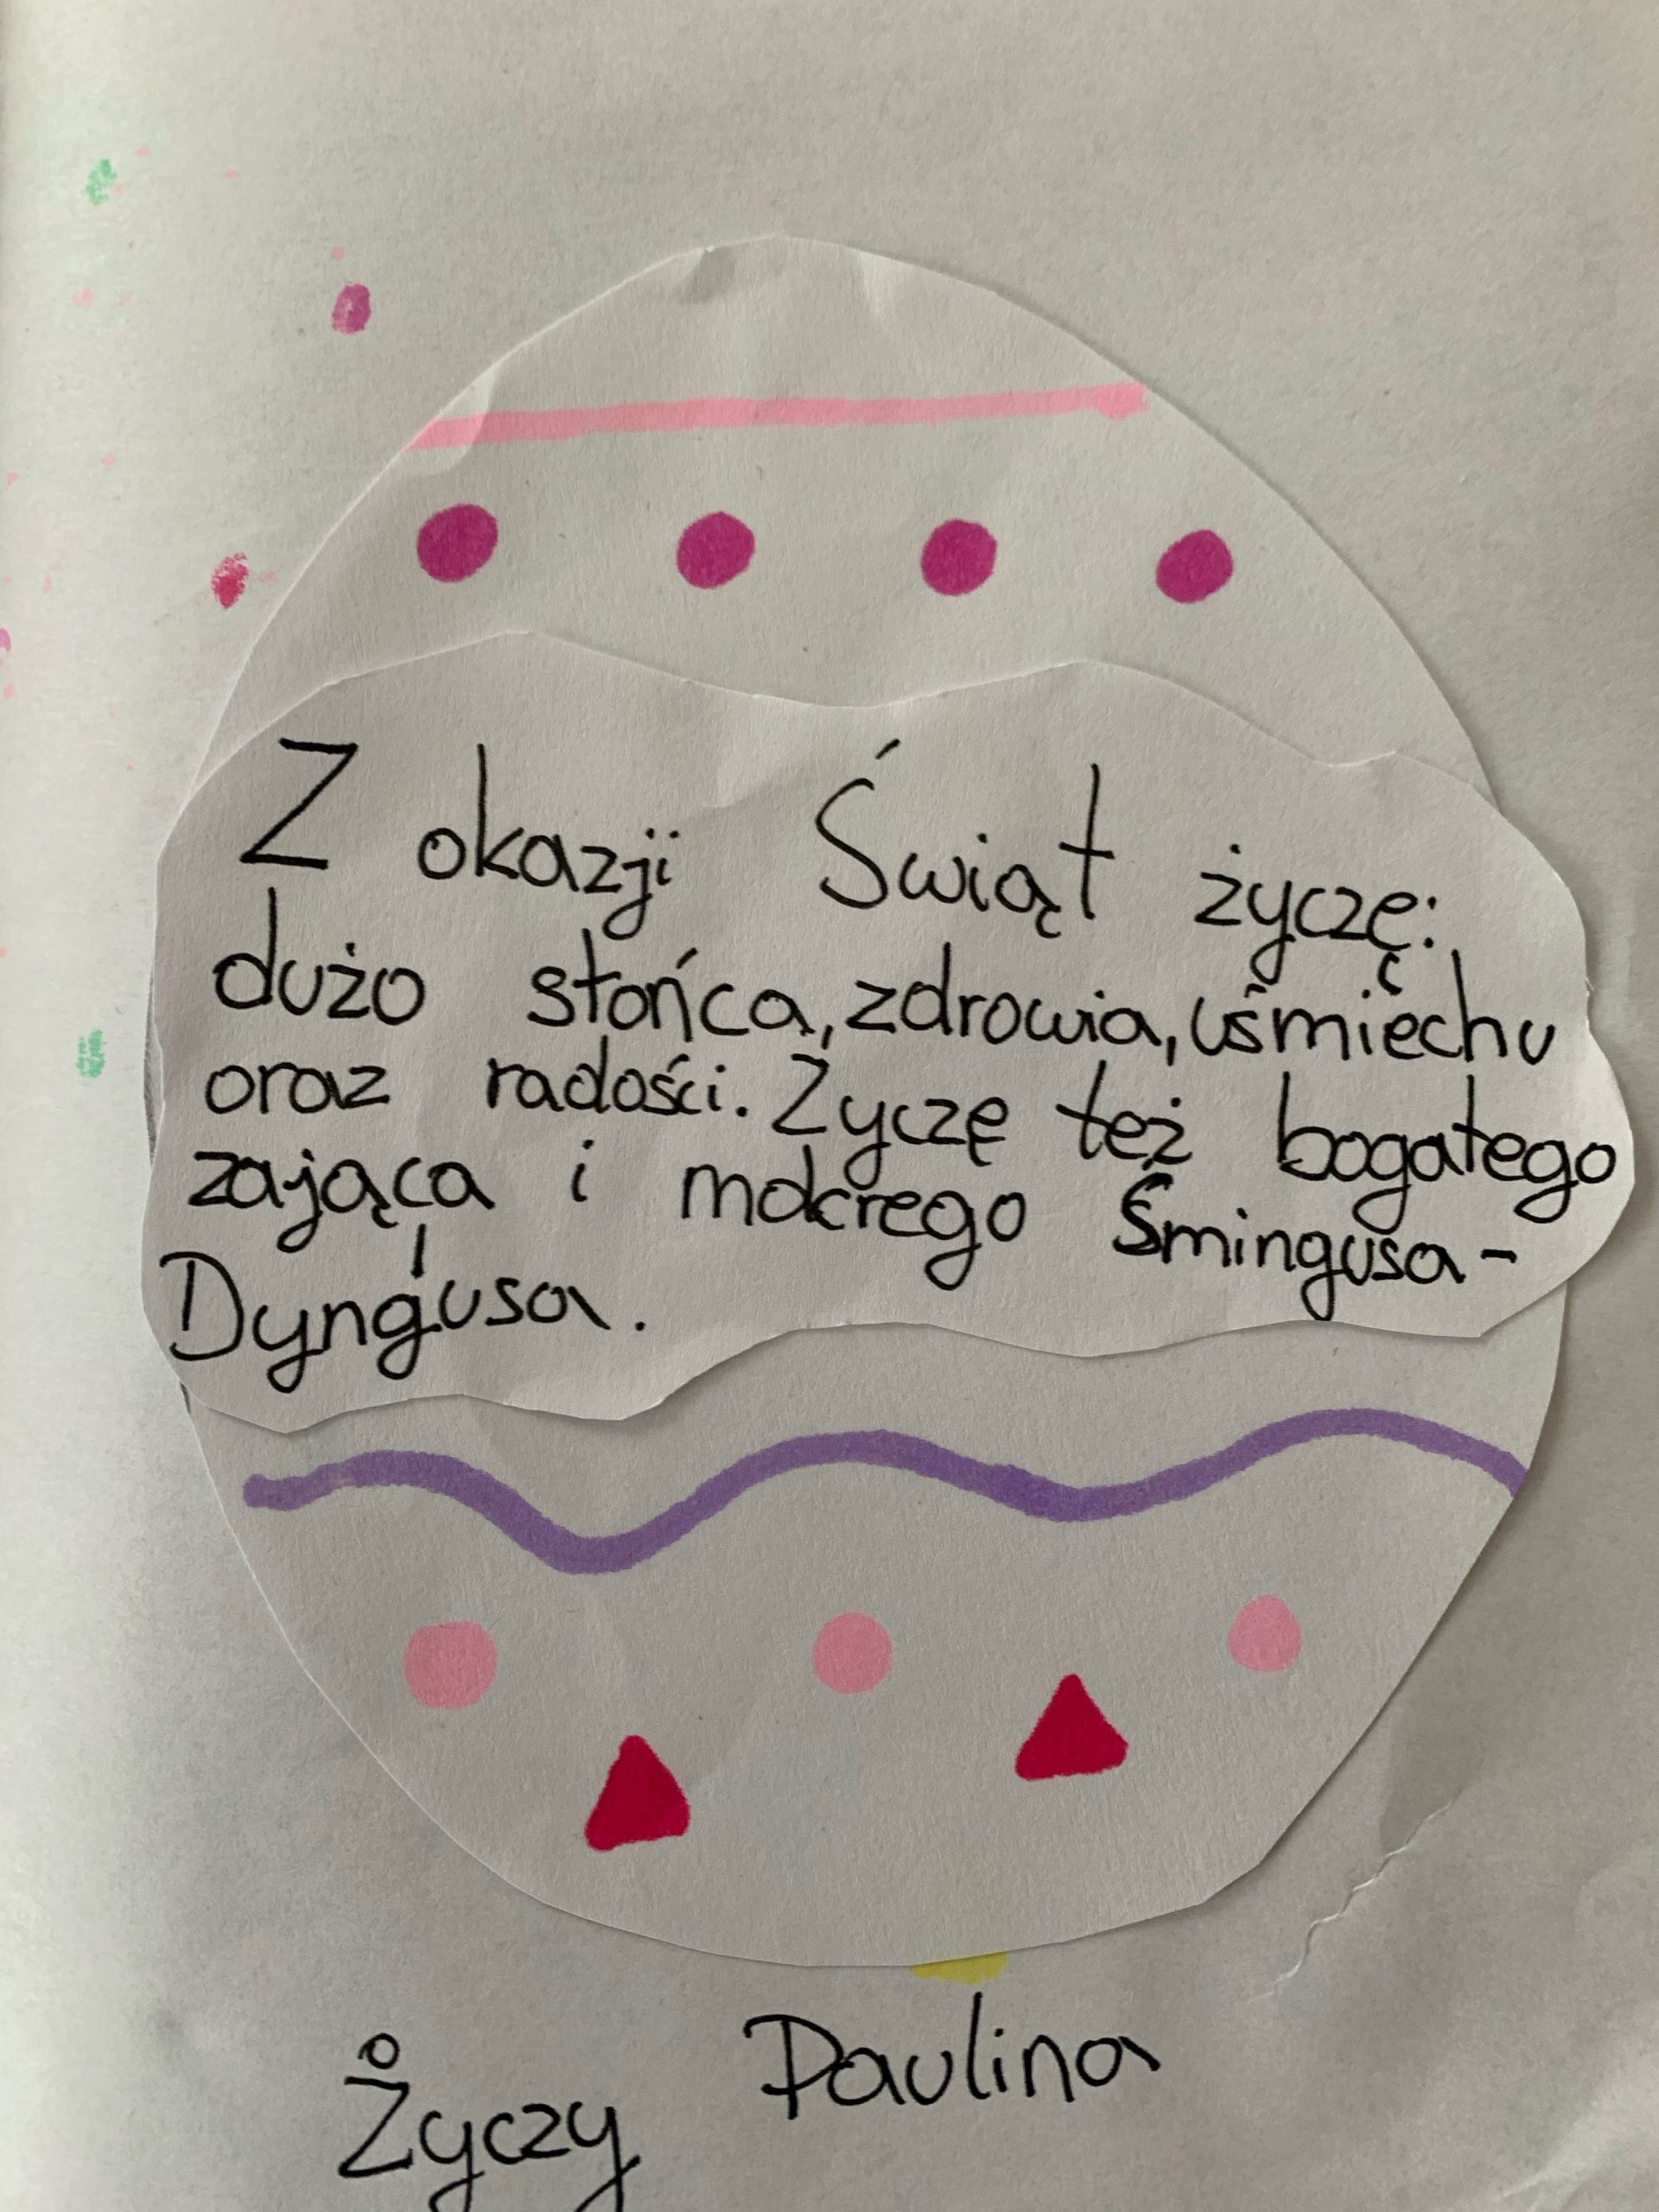 Z okazji Świąt życzę:
dużo słońca, zdrowia, uśmiechu
oraz radości. Życzę też bogatego
zająca i mokrego Śmingusa-
Dyngusa.
Paulina
Życzy